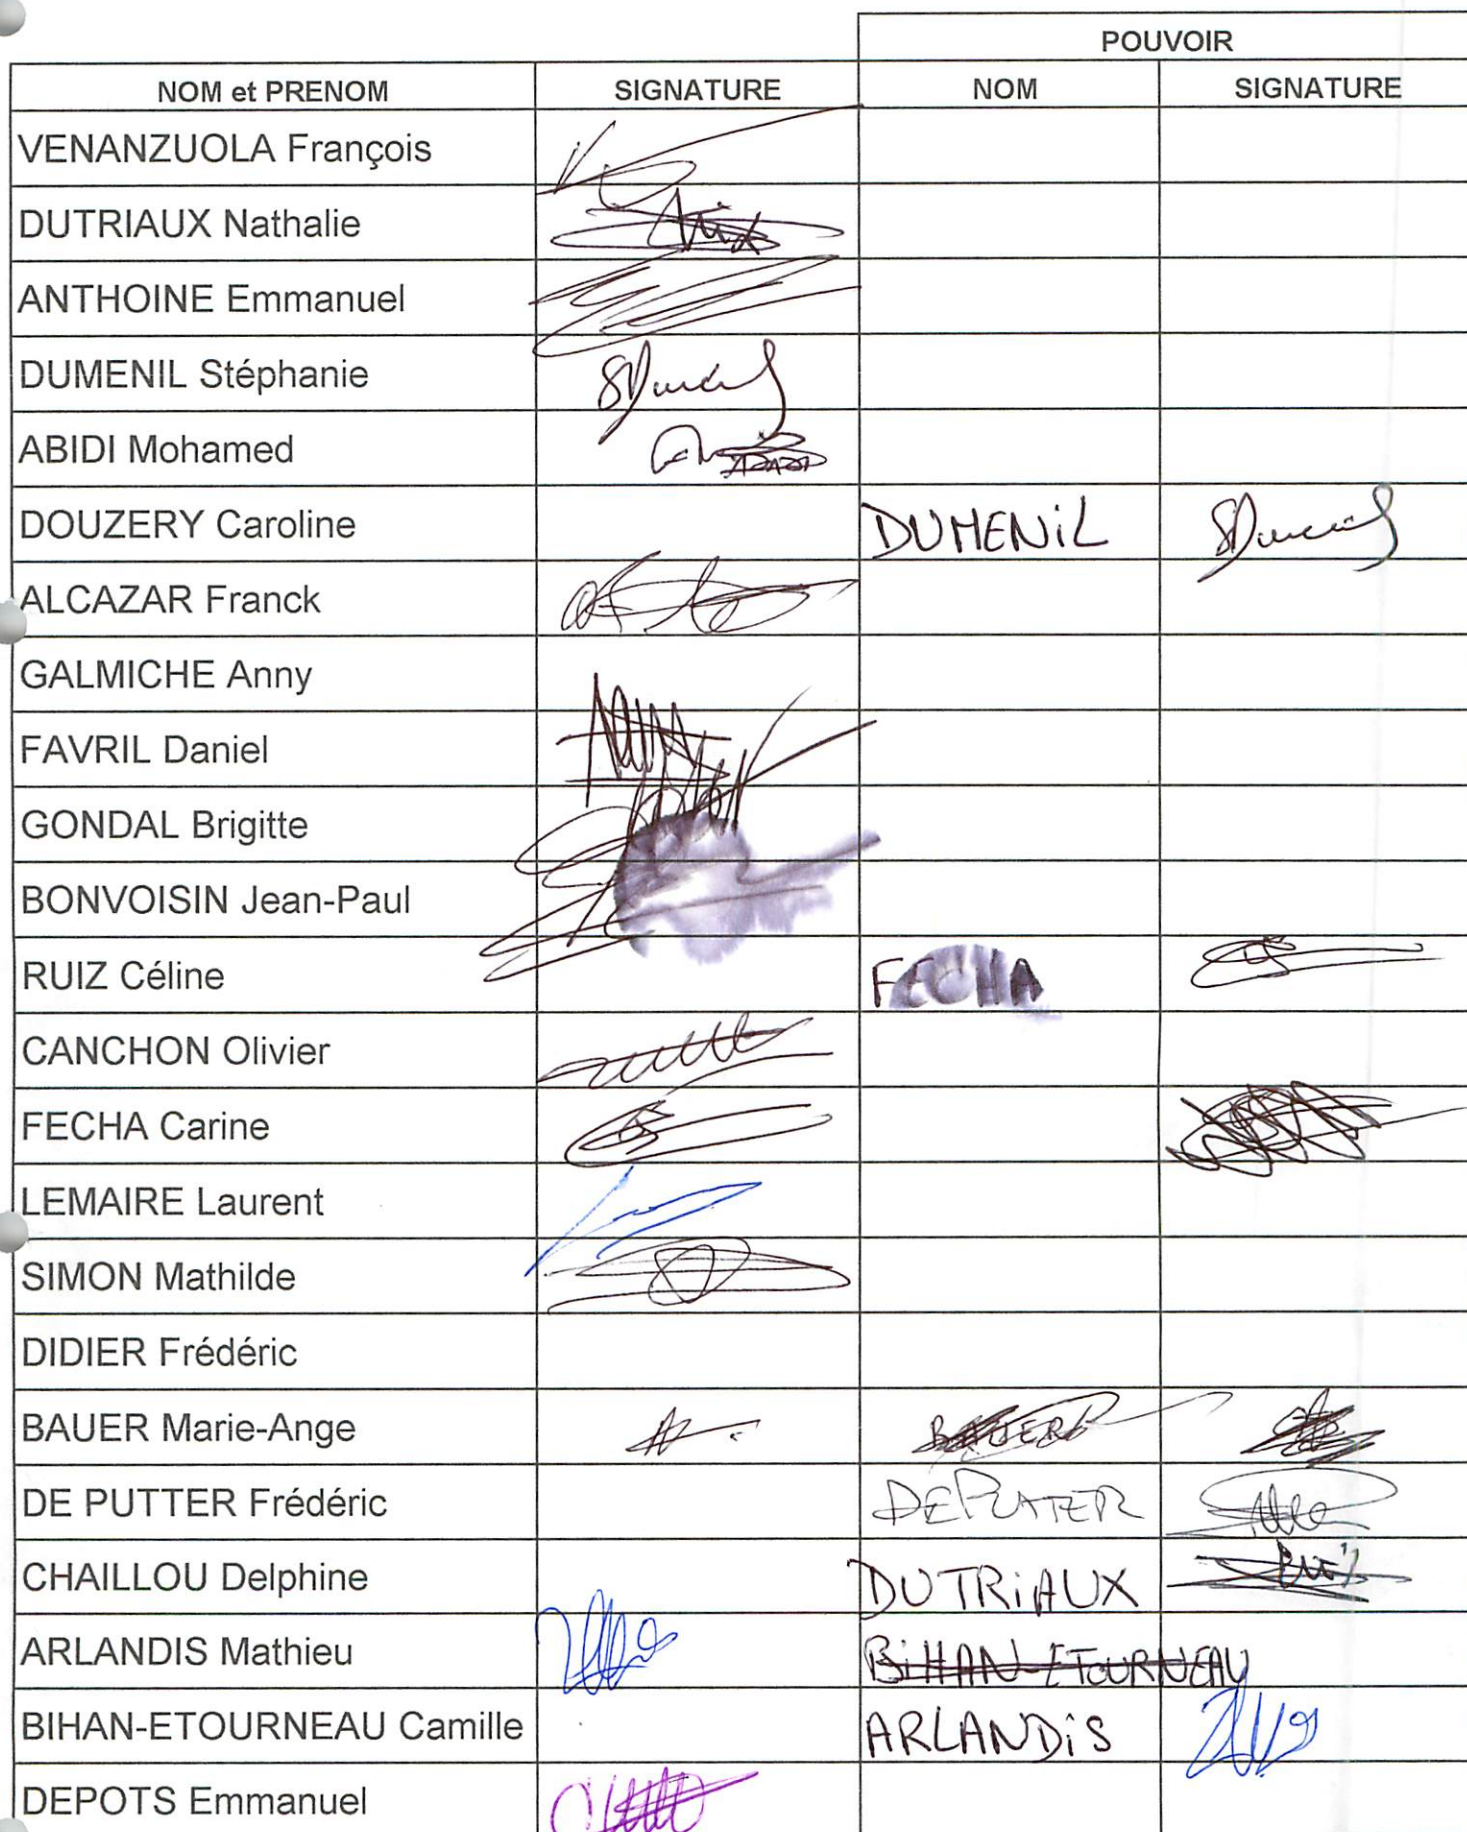 POUVOIR
NOM et PRENOM SIGNATURE NOM SIGNATURE
VENANZUOLA François
DUTRIAUX Nathalie
ANTHOINE Emmanuel
DUMENIL Stéphanie
ABIDI Mohamed
DOUZERY Caroline DUMENiL
ALCAZAR Franck
GALMICHE Anny
FAVRIL Daniel
GONDAL Brigitte
BONVOISIN Jean-Paul
RUIZ Céline FECHA
CANCHON Olivier
FECHA Carine
LEMAIRE Laurent
SIMON Mathilde
DIDIER Frédéric
BAUER Marie-Ange BAUER
DE PUTTER Frédéric
CHAILLOU Delphine DUTRiAUX
ARLANDIS Mathieu BiHAN-ETOURNEAU
BIHAN-ETOURNEAU Camille ARLANDiS
DEPOTS Emmanuel